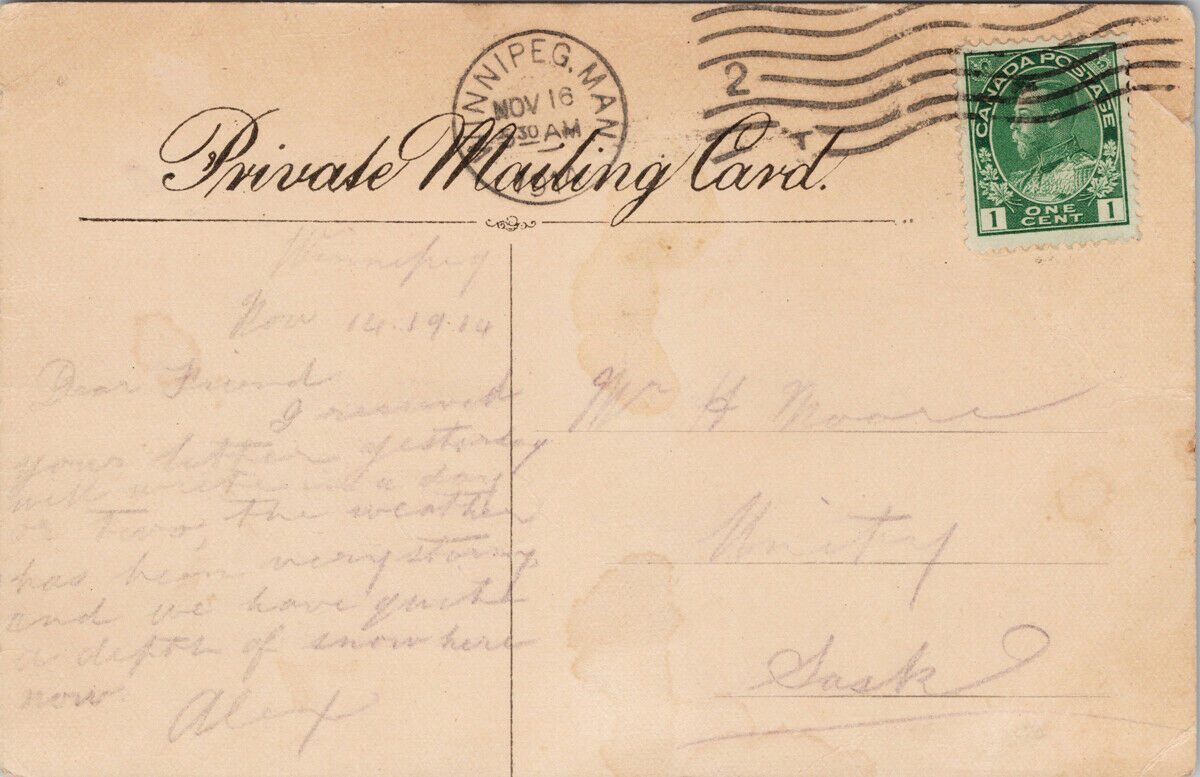 WINNIPEG. MAN.
NOV 16
30 AM
2
CANADA POSTAGE
1 ONE CENT 1
Private Mailing Card.
Winnipeg
Nov 14. 19.14
Dear Friend
I received
your letter yesterday
will write in a day
or two, the weather
has been very stormy
and we have quite
a depth of snow here
now
Alex
Mr H Moore
Unity
Sask